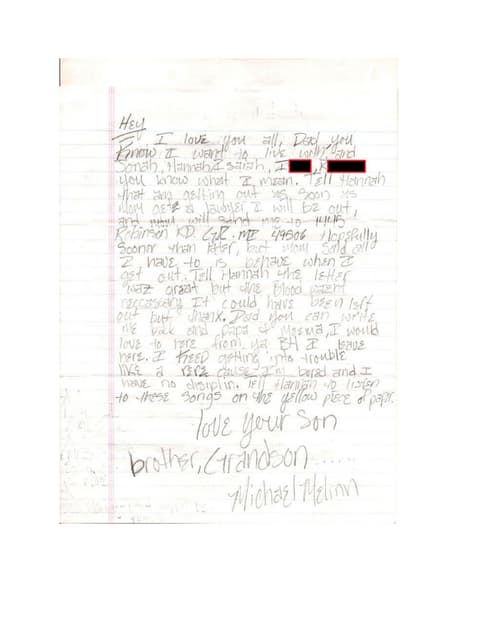 Hey
I love you all, Dad, you
know I want to live with, and
Sonah, Hannah, Isaiah, I
you know what I mean. Tell Hannah
that am getting out as soon as
mom gets a lawyer I will be out,
and mom will send me to
Robinson RD G.R. MI 49506 Hopefully
sooner than later, but mom said all
I have to is behave when I
get out. Tell Hannah the letter
waz great but the blood wasnt
neccessary It could have been left
out but thanx. Dad you can write
me back and Papa & Meema, I would
love to here from ya B4 I leave
here. I Keep getting into trouble
like a cause I'm bored and I
have no disiplin. Tell Hannah to listen
to these songs on the yellow piece of papr.
love Your Son
brother, Grandson ......
Michael Melinn